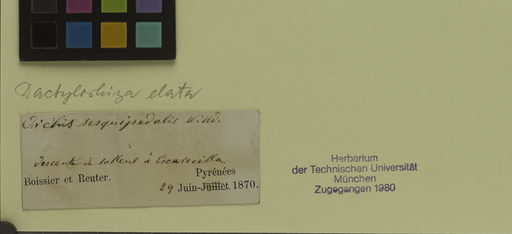 Dactylorhiza elata
Orchis sesquipedalis Willd.
descente de Sallent à Escarrilla
Pyrénées
Boissier et Reuter.
29 Juin-Juillet 1870.
Herbarium
der Technischen Universität
München
Zugegangen 1980